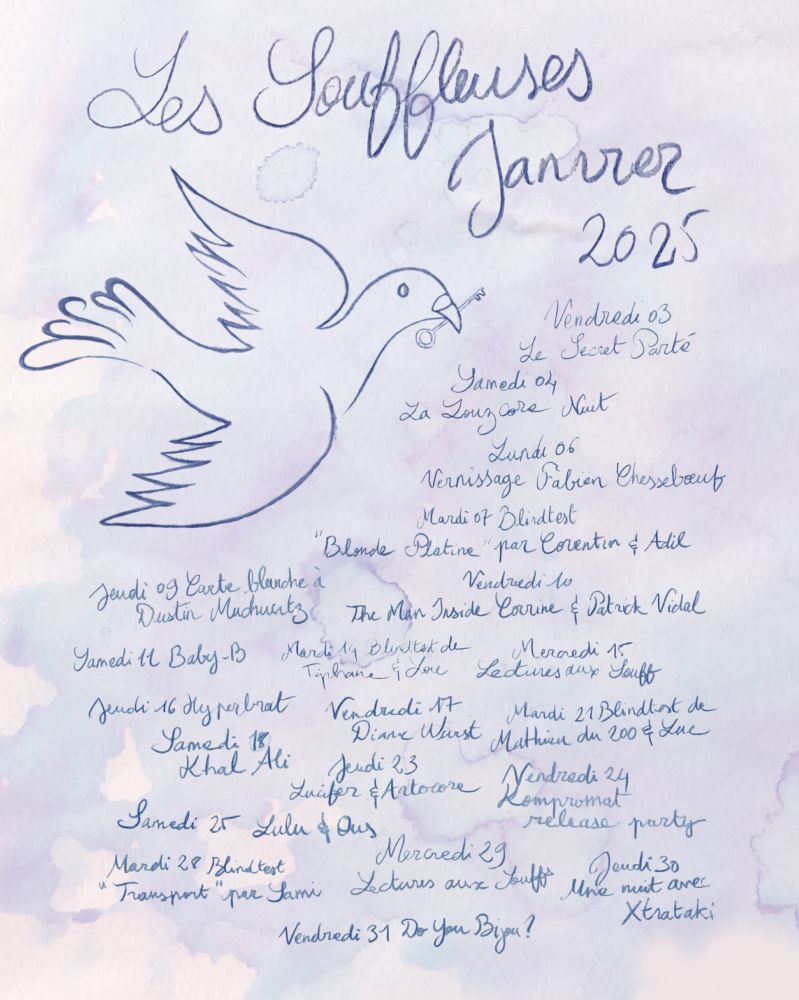 Les Souffleuses
Janvier
2025
Vendredi 03
Le Secret Porté
Samedi 04
La Louzcore Nuit
Lundi 06
Vernissage Fabien Chesseboeuf
Mardi 07 Blindtest
"Blonde Platine" par Corentin & Adil
Jeudi 09 Carte blanche à
Dustin Muchuvitz
Vendredi 10
The Man Inside Corrine & Patrick Vidal
Samedi 11 Baby-B
Mardi 14 Blindtest de
Tiphane & Loïc
Mercredi 15
Lectures aux Souff
Jeudi 16 Hyperbrat
Vendredi 17
Diane Wurst
Mardi 21 Blindtest de
Mathieu du 200 & Luc
Samedi 18
Khal Ali
Jeudi 23
Lucifer & Artocore
Vendredi 24
Kompromat
release party
Samedi 25 Lulu & Ous
Mardi 28 Blindtest
"Transport" par Sami
Mercredi 29
Lectures aux Souff
Jeudi 30
Une nuit avec
Xtrataki
Vendredi 31 Do You Bijou?